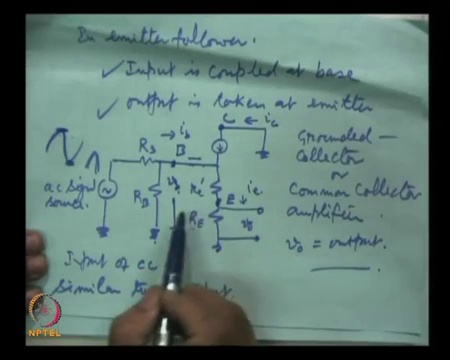 In emitter follower.
✓ Input is coupled at base
✓ output is taken at emitter
C ← ic
→ ib
B
Rs
ac signal
source
RB
re'
E ↓ ie
RE
vo
Grounded –
Collector
or
Common Collector
amplifier
vo = output.
Input of CC
Similar
NPTEL